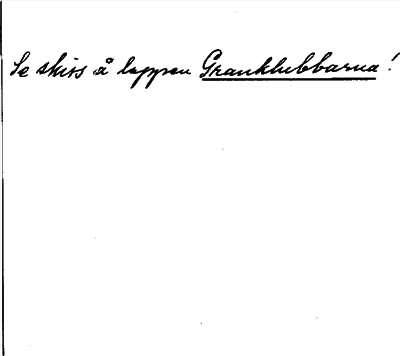 Se skiss å lappen Granklubbarna!